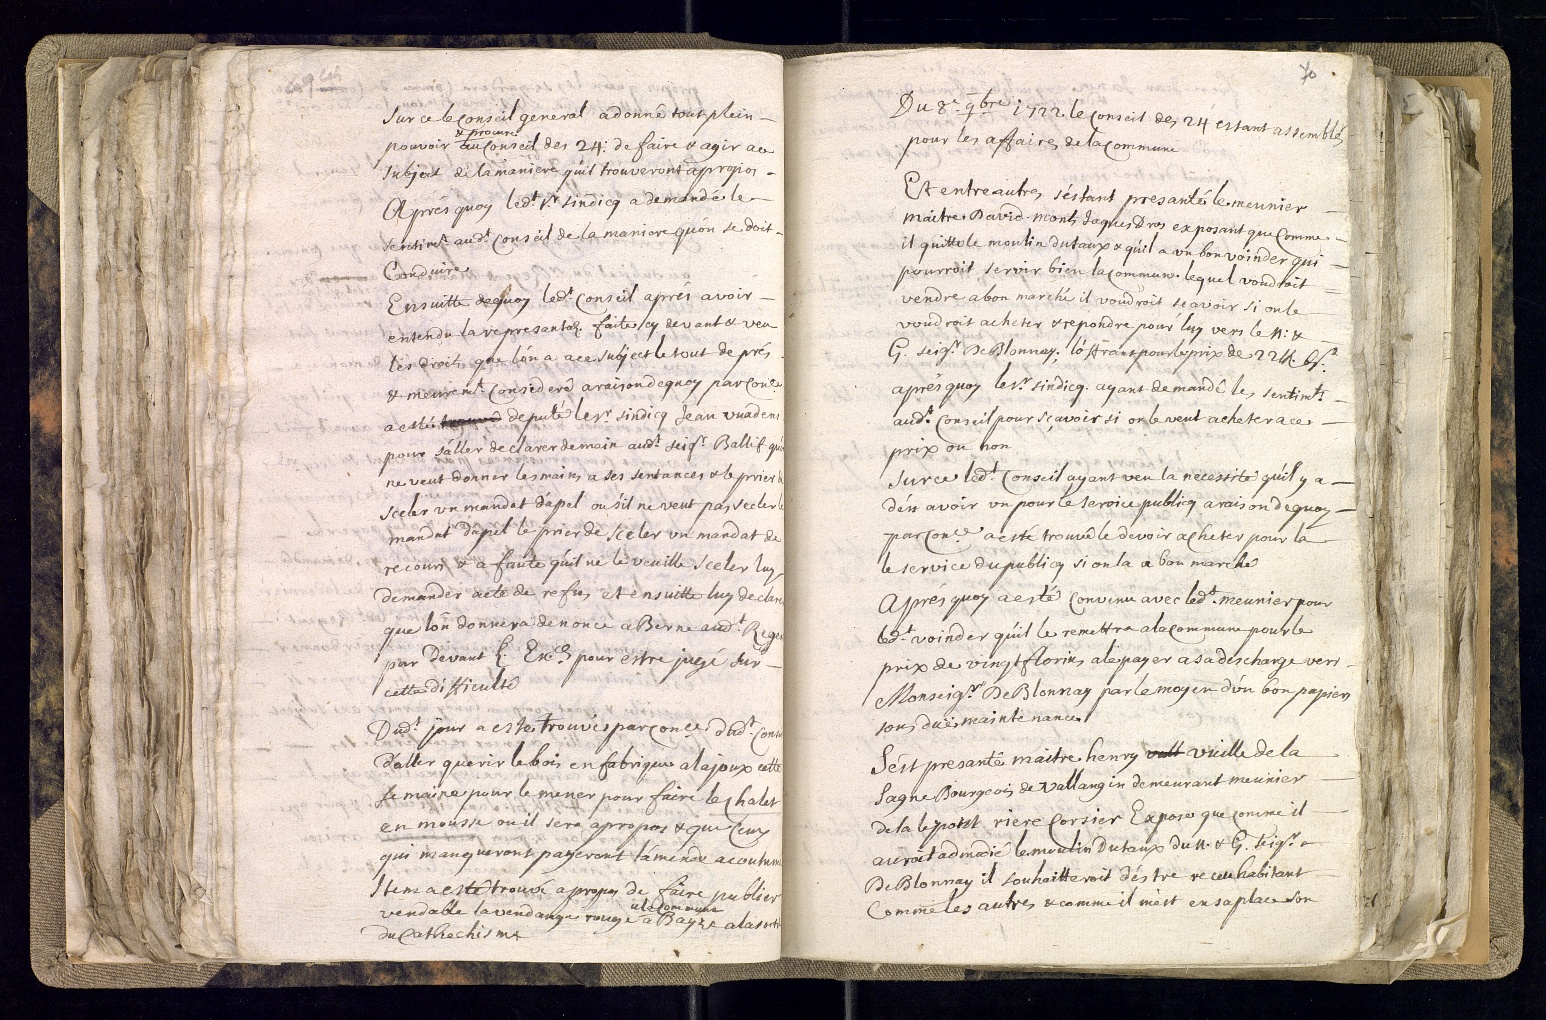 Sur ce le Conseil general a donné tout plein
& procure
pouvoir au Conseil des 24: de faire & agir au
subject de la maniere qu'il trouveront a propos
Aprés quoy led.t Sr. sindicq a demandé le
sentim.t aud.t Conseil de la maniere qu'on se doit
Conduire
Ensuitte dequoy led.t Conseil aprés avoir
entendu la representaõn faite cy devant & veu
les droits que l'on a a ce subject le tout de prés
& meurem.t Consederé a raison dequoy par Con.ce
a esté deputé le Sr. sindicq Jean vuadens
pour s'aller declarer demain aud.t seigr. Ballif qu'on
ne veut donner les mains a ses sentances & le prier de
sceler vn mandat d'apel ou s'il ne veut pas sceler le
mandat d'apel le prier de sceler vn mandat de
recours & a faute qu'il ne le veuille sceler luy
demander acte de refus et ensuitte luy declarer
que l'on donnera denonce a Berne aud.t
par devant L. Exces pour estre jugé sur
cette difficulté
Dud.t jour a esté trouvés par Conce dud.t Cons
d'aller querir le bois en fabrique a la joux cette
semaine pour le mener pour faire le Chalet
en mousse ou il sera apropos & que Ceux
qui manqueront payeront l'amende acoutumé
Item a esté trouvé a propos de faire publier
a la Commune
vendable la vendange rouge a Bayse a la sortie
du Cathechisme
70
Du 8.e 9bre 1722 le Conseil des 24 estant assemblés
pour les affaires de la Commune
Et entre autres s'estant presanté le meunier
maitre David Jaques Dros exposant que Comme
il quitte le moulin du taux & qu'il a vn bon voinder qui
pourroit servir bien la Commune lequel voudroit
vendre a bon marché il voudroit scavoir si on le
voudroit acheter & repondre pour luy vers le N: &
G. seigr. De Blonnay, l'offrant pour le prix de 22 fl.
aprés quoy le Sr. sindicq. ayant demandé les sentim.ts
aud.t Conseil pour sçavoir si on le veut acheter a ce
prix ou non
Sur ce led.t Conseil ayant veu la necessité qu'il y a
d'en avoir vn pour le service publicq a raison dequoy
par Con.ce a esté trouvé le devoir acheter pour la
le service du publicq si on la a bon marché
Aprés quoy a esté Convenu avec led.t meunier pour
led.t voinder qu'il le remettra a la Commune pour le
prix de vingt florins a le payer a sa descharge vers
Monseigr. De Blonnay par le moyen d'un bon papier
sous duë maintenance
S'est presanté maitre henry vuille de la
Sagne Bourgeois de Vallangin demeurant meunier
de la riere Corsier Expose que comme il
auroit admodié le moulin Du taux du N. & G. seigr.
De Blonnay il souhaitteroit d'estre receu habitant
Comme les autres & comme il met en sa place son